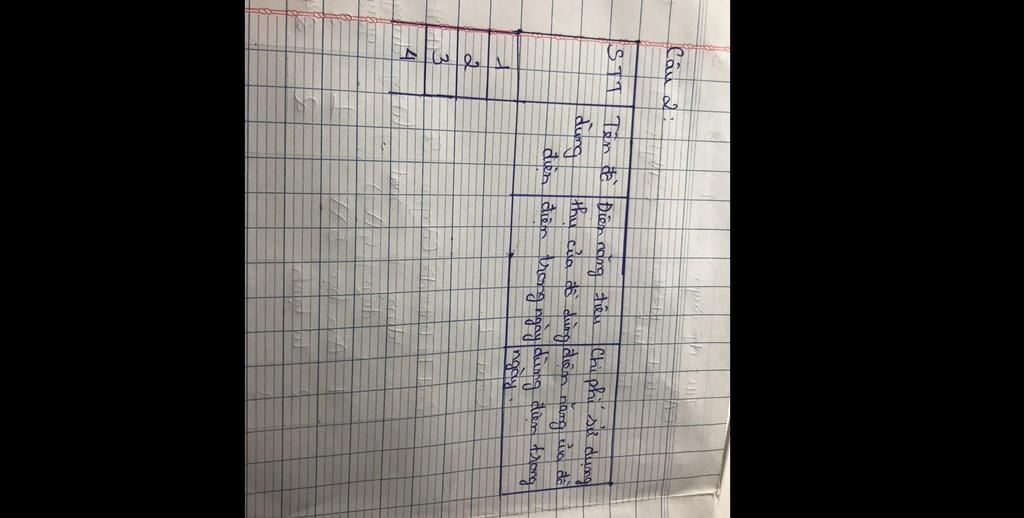 Câu 2:
STT
Tên đồ
dùng
điện
Điện năng tiêu
thụ của đồ dùng
điện trong ngày
Chi phí sử dụng
điện năng của đồ
dùng điện trong
ngày.
1
2
3
4